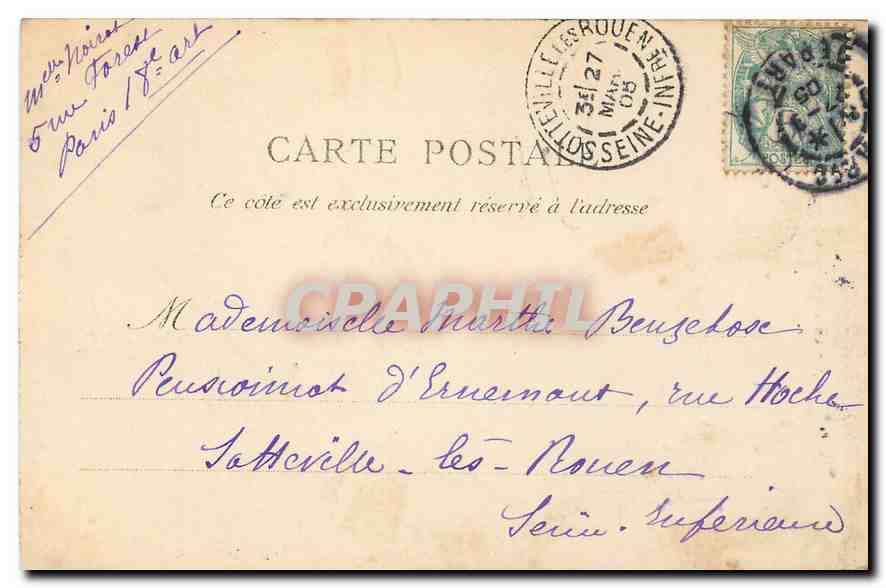 Mme Noirot
5 rue Forest
Paris 18e art
SOTTEVILLE LES ROUEN
SEINE-INFRE
3E 27
MAR
05
DEPART
05
POSTES
CARTE POSTALE
Ce côté est exclusivement réservé à l'adresse
CPAPHIL
Mademoiselle Marthe Beuzebosc
Pensionnat d'Ernemont, rue Hoche
Sotteville-lès-Rouen
Seine-Inférieure